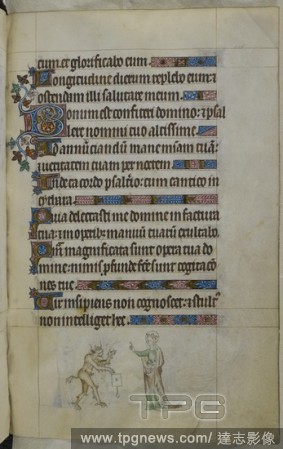 eum et glorificabo eum.
Longitudine dierum replebo eum: et
ostendam illi salutare meum.
Bonum est confiteri domino: et psal
lere nomini tuo altissime.
Ad annuntiandum mane misericordiam tuam: et
veritatem tuam per noctem.
In decacordo psalterio: cum cantico in
cythara.
Quia delectasti me domine in factura
tua: et in operibus manuum tuarum exultabo.
Quam magnificata sunt opera tua do
mine: nimis profunde facte sunt cogitationes
nes tue.
Vir insipiens non cognoscet: et stultus
non intelliget hec.
TPG
www.tpgnews.com/達志影像